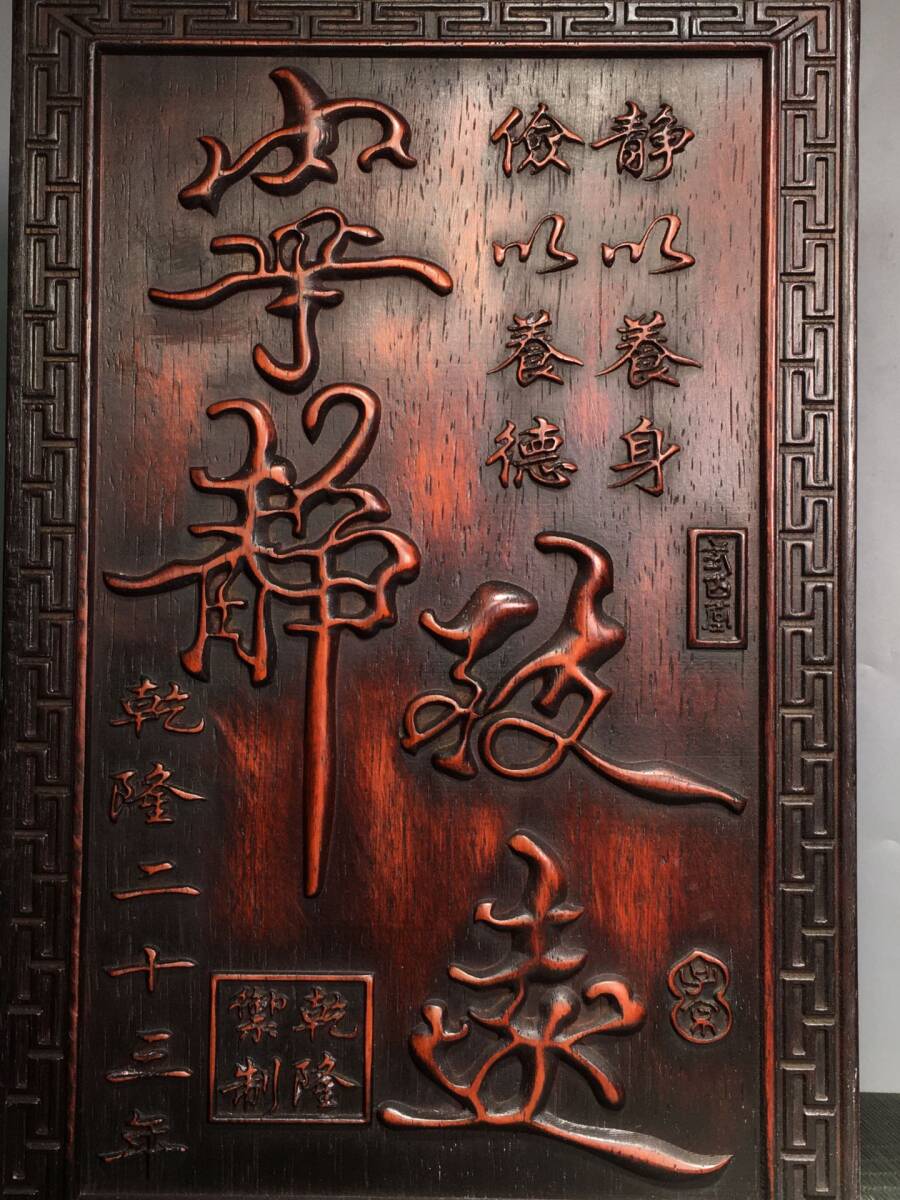 静以養身
儉以養德
寧静
致遠
乾隆二十三年
乾隆
御制